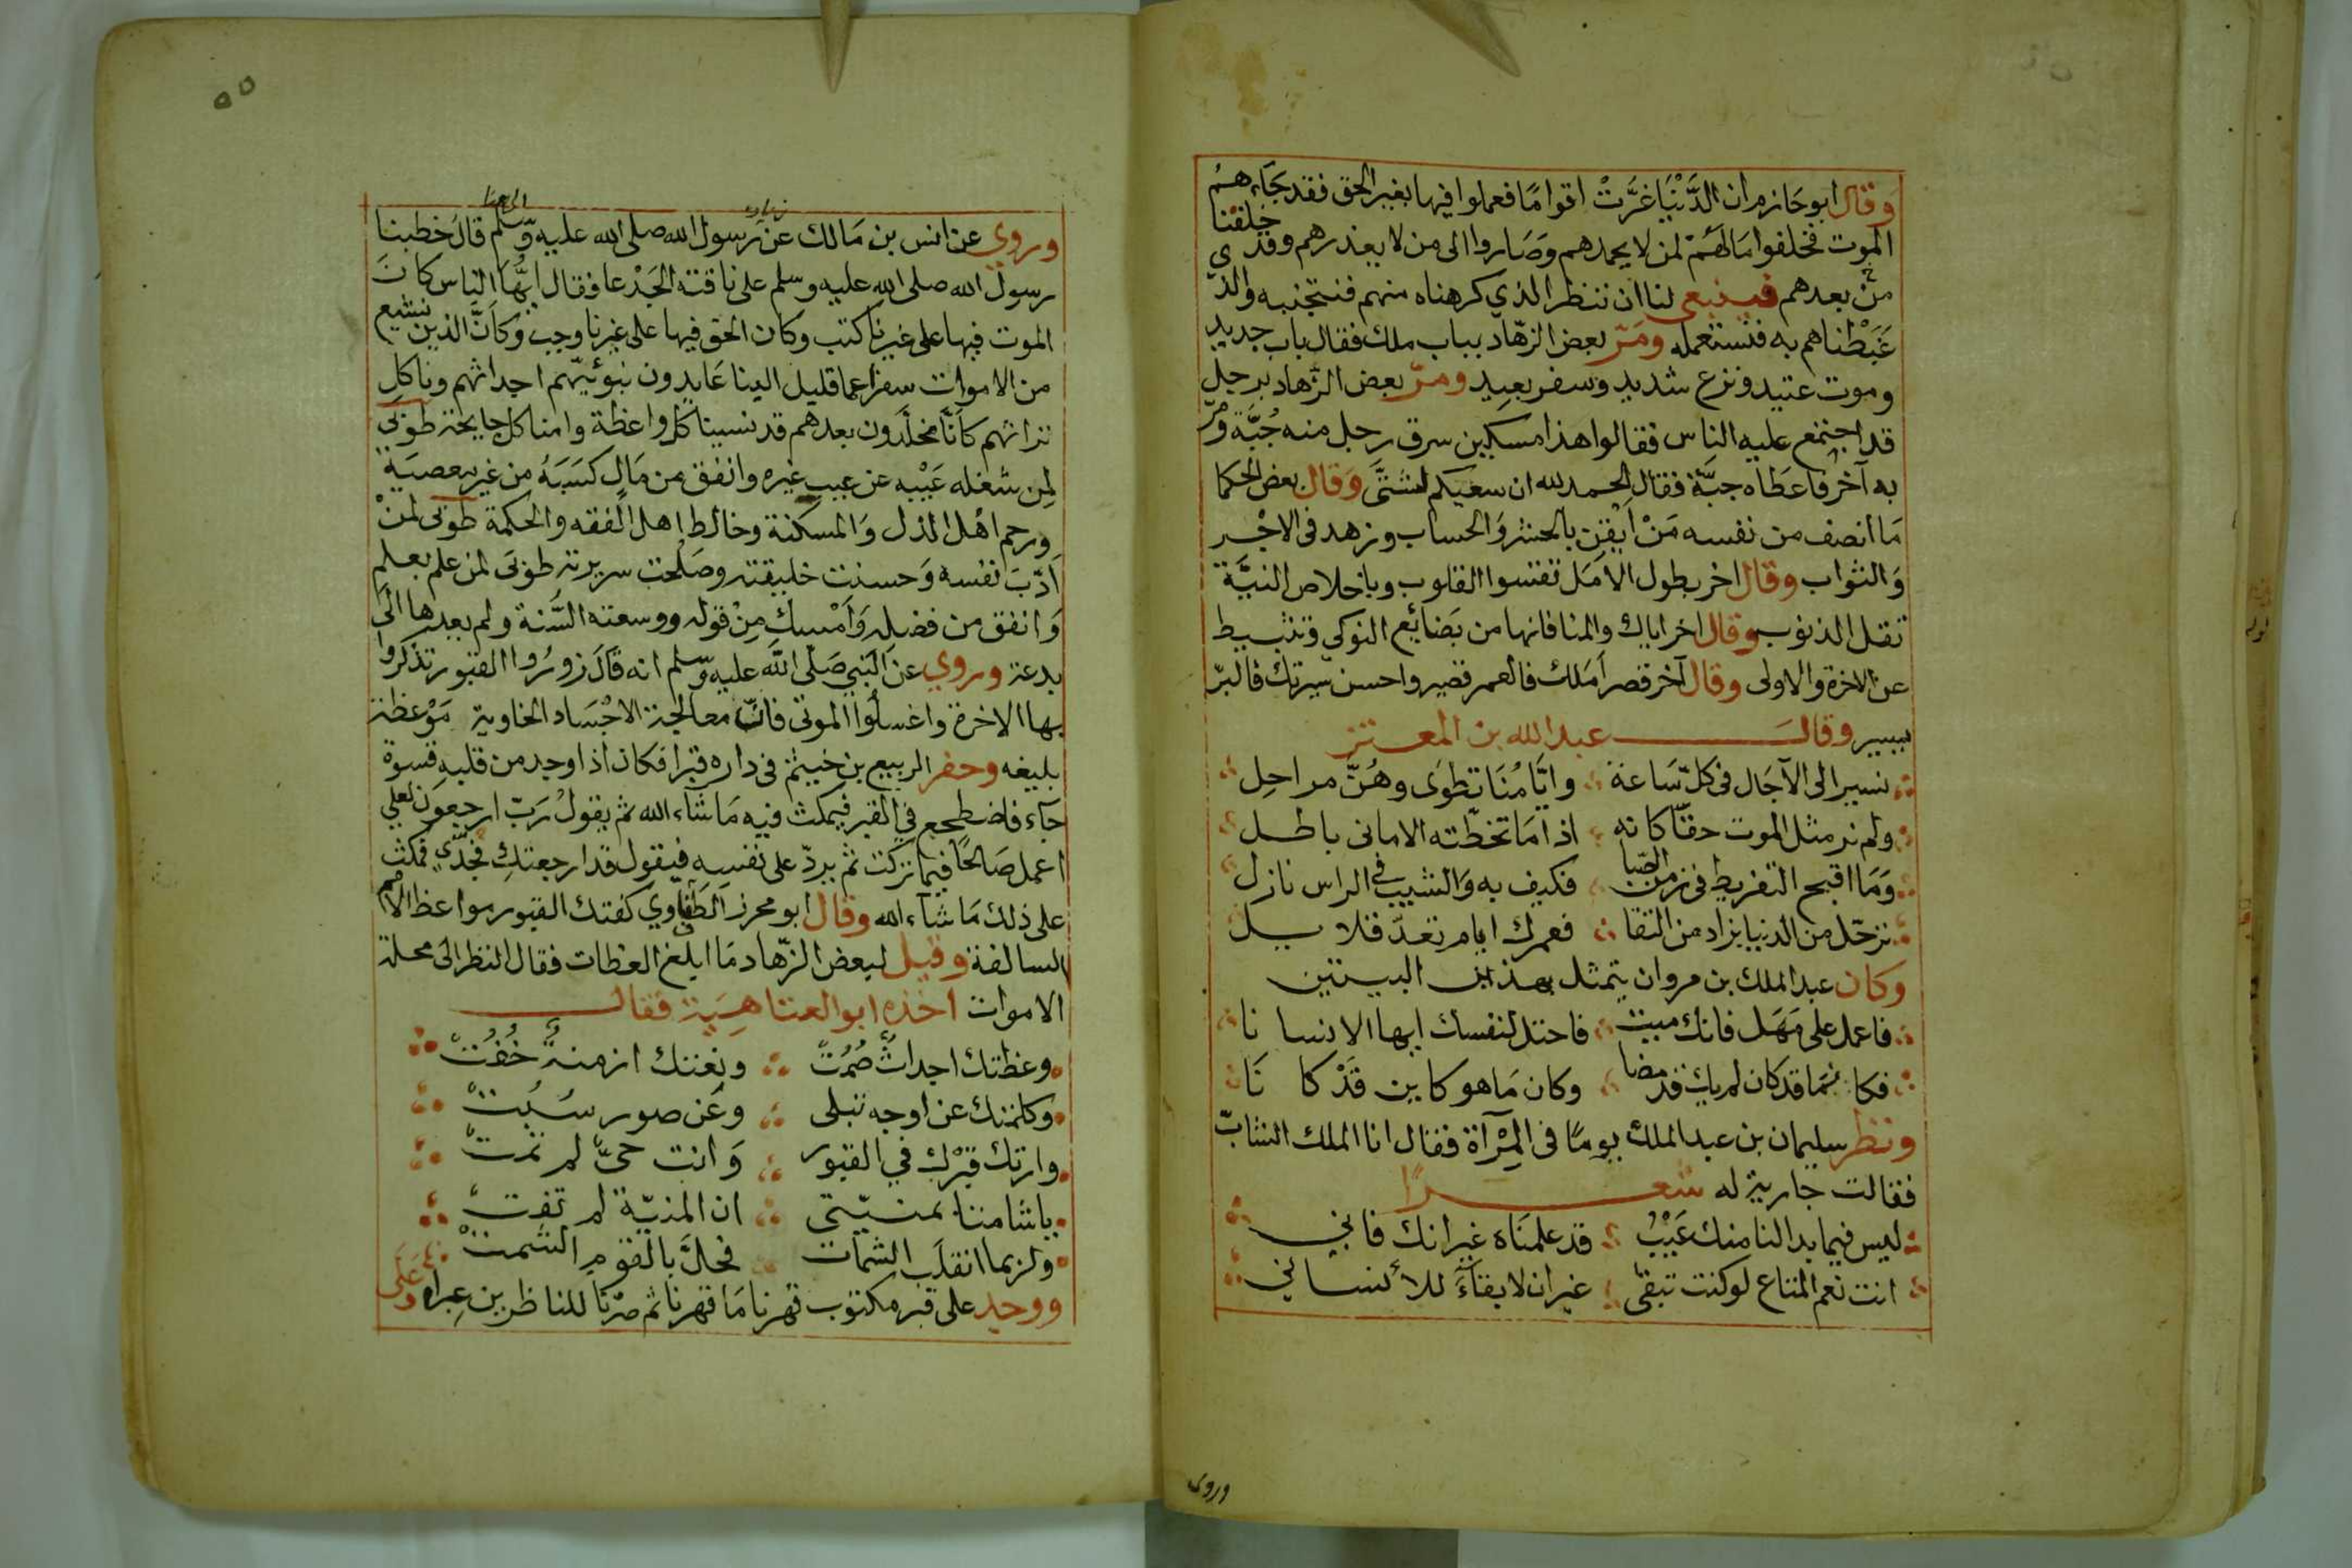 وقال ابو حازم ان الدَّنْيَا غَرَّتْ اقوامًا فعملوا فيها بغير الحق فقد جَاءَهُم
الموت فخلفوا مَا لَهُمْ لمن لا يحمدهم وَصَاروا الى من لا يعذرهم وقد خلفنا
من بعدهم فينبغي لنا ان ننظر الذي كرهناه منهم فنجتنبه والذي
غَبَطْناهم به فنستعمله ومَرّ بعض الزهّاد بباب ملك فقال باب جديد
وموت عتيد ونزع شديد وسفر بعيد ومرّ بعض الزهاد برجل
قد اجتمع عليه الناس فقالوا هذا مسكين سرق رجل منه جُبَّة ومرّ
به آخر فاعطاه جبَّة فقال الحمد لله ان سعيكم لشتَّى وقال بعض الحكما
مَا انصف من نفسه مَنْ اَيْقن بالحشر وَالحساب وزهد فى الاجْر
وَالثواب وقال اخر بطول الامَل تقسوا القلوب وباخلاص النيَّة
تقل الذنوب وقال اخر اياك والمنا فانها من بَضائع النوكي وتثبيط
عن الاخرة والاولى وقال آخر قصر اَمَلك فالعمر قصير واحسن سيرتك فالبرّ
يسير وقال عبد الله بن المعتز
نسير الى الآجَال فى كلّ سَاعة وايَّامُنَا تطوَى وهُنّ مراحِل
ولم نر مثل الموت حقّا كانه اذا مَا تخطّته الامانى باطل
وَمَا اقبح التفريط فى زمن الصّبا فكيف به وَالشيب فى الراس نازل
ترحّل من الدنيا بزاد من التقا فعمرك ايام تعدّ قلايل
وكان عبد الملك بن مروان يتمثل بهذين البيتين
فاعمل على مَهَل فانك ميت فاحتل لنفسك ايها الانسانا
فكانمَا قد كان لم يك قد مضا وكان مَا هو كاين قَدْ كانَا
ونظر سليمان بن عبد الملك يومًا فى المِرْآة فقال انا الملك الشابّ
فقالت جارية له شعرًا
ليس فيما بدا لنا مِنك عَيْبُ قد علمنَاه غير انك فاني
انت نعم المتاع لو كنت تبقى غير ان لا بقآءَ للأنساني
وروى
٥٥
وروي عن انس بن مَالك عن رسول الله صلى الله عليه وسّلم قال خطبنا
رسول الله صلى الله عليه وسلم على ناقته الجَدْعا فقال ايُّهَا الناس كانَ
الموت فيها على غيرنا كتب وكان الحق فيها على غيرنا وجب وكاَنَّ الذين نشيع
من الاموات سفر عما قليل الينا عَايدون نبوئيّهم اجداثهم وناكل
تراثهم كاَنَّا مخلّدون بعدهم قد نسينا كل واعظة وامنا كل جايحة طوبى
لِمن شغله عَيْبه عن عيب غيره وانفق من مَال كسَبَهُ من غير معصيَة
ورحم اهْل الذل وَالمسكنة وخالط اهل الفقه والحكمة طوبى لمَنْ
اَدّبَ نفسه وَحسنت خليقته وصَلُحت سريرته طوبى لمن علم بعلم
وَانفق من فضله وَاَمْسك مِنْ قوله ووسعته السُّنة ولم يعدها الى
بدعة وروي عن النبي صَلّى الله عليه وسّلم انه قال زورُوا القبور تذكروا
بها الاخرة واغسلُوا الموتى فانّ معالجة الاجْسَاد الخاوية مَوْعظة
بليغه وحفر الربيع بن خيثم فى داره قبرا فكان اذا وجد من قلبه قسوة
جآء فاضطجع في القبر فيمكث فيه مَا شآء الله ثم يقولُ رَبّ ارجعون لعلي
اعمل صَالحًا فيما تركت ثم يردّ على نفسه فيقول قد ارجعتكِ فجدّي فمكث
على ذلك مَا شآء الله وقال ابو محرز الطفاوي كفتك القبور مواعظ الامم
السالفة وقيل لبعض الزّهاد مَا ابلغ العظات فقال النظر الى محلة
الاموات اخذه ابو العتاهِيَة فقال
وعظتك اجداثُ صُمُتْ ونعتك ازمنةُ خُفُتْ
وكلمتك عن اوجه تبلى وعَن صور سُبُتْ
وارتك قبْرك في القبور وَانت حىّ لم تمتْ
يا شامتا بمنيّتى ان المنيّة لم تفِت
ولربما انقلَب الشمات فحلَّ بالقوم الشمتْ
ووجد على قبر مكتوب قهرنا مَا قهرنا ثم صرْنا للناظرين عِبراه وَعَلَى